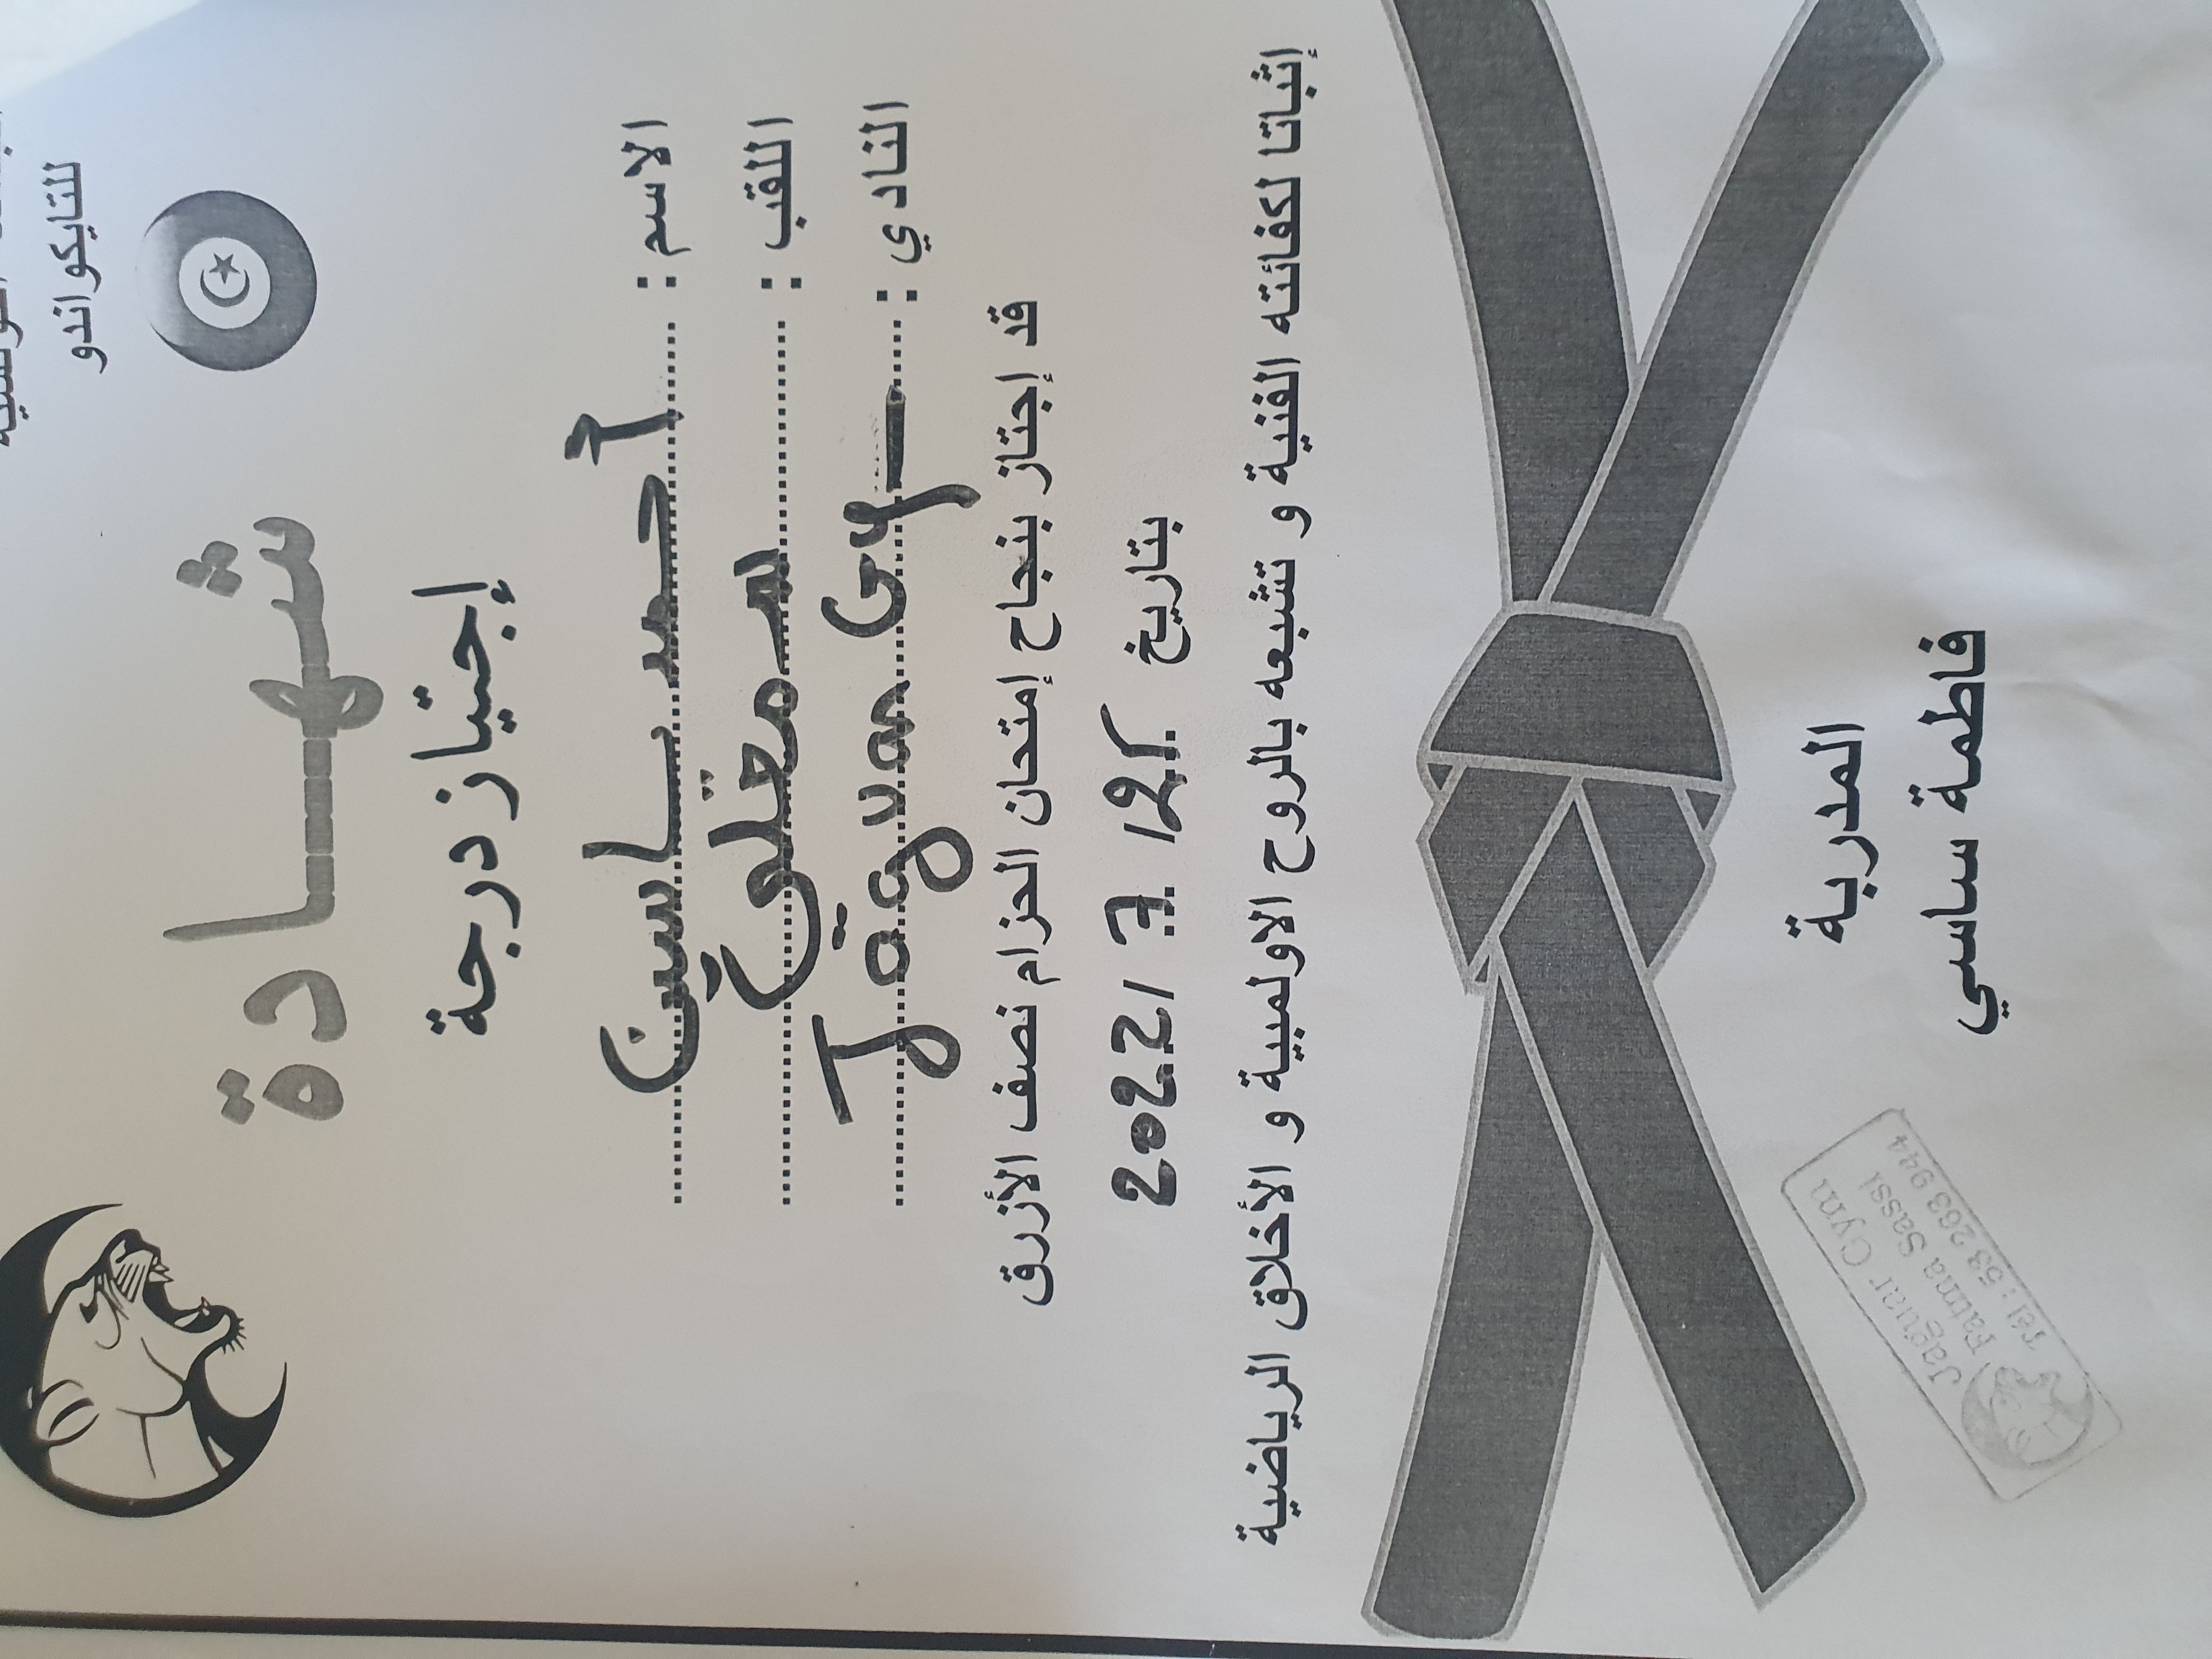 للتايكواندو
شهادة
إجتياز درجة
الاسم : أحمد ياسين
اللقب :
النادي : Jaguar Gym
قد إجتاز بنجاح إمتحان الحزام نصف الأزرق
بتاريخ 2022/7/21
إثباتا لكفائته الفنية و تشبعه بالروح الاولمبية و الأخلاق الرياضية
المدربة
فاطمة ساسي
Jaguar Gym
Fatma Sassi
Tél : 53 263 944